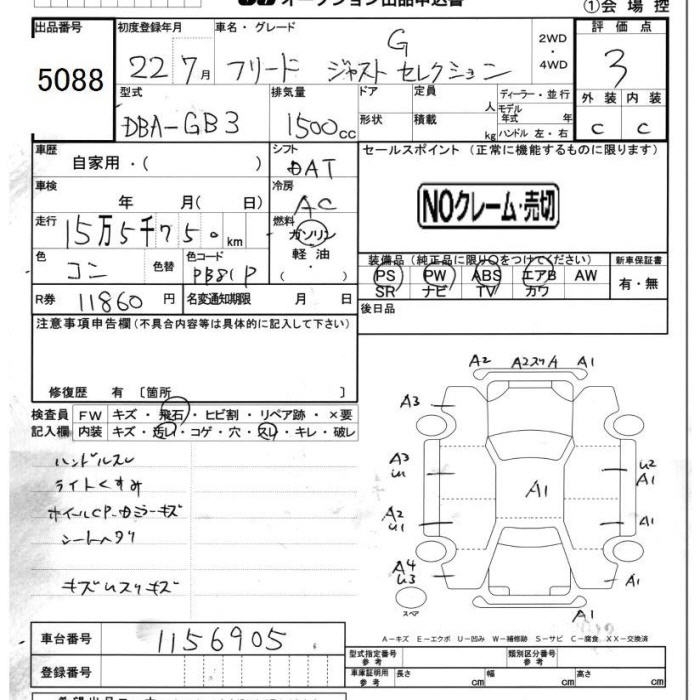 オークション出品申込書
①会場控
出品番号 初度登録年月 車名・グレード 評価点
5088 22 7月 フリード G ジャストセレクション 2WD・4WD 3
外装 内装
C C
型式 排気量 ドア 定員 人 ディーラー・並行
DBA-GB3 1500cc 形状 積載 kg モデル年式 年
ハンドル 左・右
車歴 自家用・( ) シフト DAT
セールスポイント (正常に機能するものに限ります)
車検 年 月( 日) 冷房 AC
NOクレーム・売切
走行 15万5千750km 燃料 ガソリン・軽油・( )
色 コン 色替 色コード PB81P
装備品(純正品に限り○をつけてください) 新車保証書
PS PW ABS エアB AW 有・無
SR ナビ TV カワ
R券 11860円 名変通知期限 月 日
後日品
注意事項申告欄(不具合内容等は具体的に記入して下さい)
修復歴 有〔箇所 〕
検査員記入欄 FW キズ・飛石・ヒビ割・リペア跡・×要
内装 キズ・汚レ・コゲ・穴・スレ・キレ・破レ
ハンドルスレ
ライトくすみ
シートヘタリ
A2 A2スリA A1
A3
A3 U2
A1
A1
A2 A1
U1
A4 A1
U3
スペア
A1
A-キズ E-エクボ U-凹み W-補修跡 S-サビ C-腐食 XX-交換済
車台番号 1156905
型式指定番号参考 類別区分番号参考
登録番号
車庫証明用参考 長さ cm 幅 cm 高さ cm